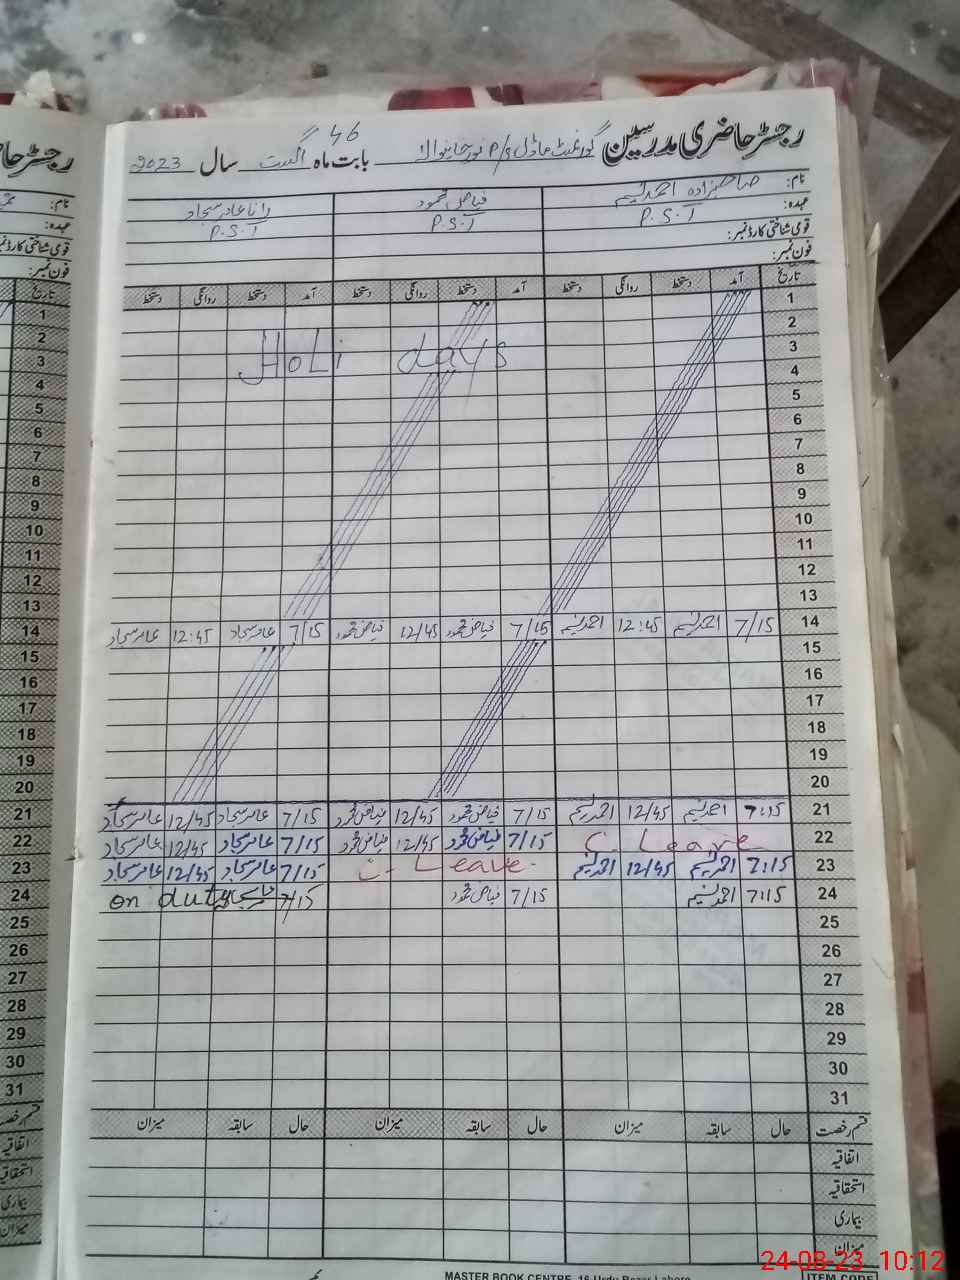 46
رجسٹر حاضری مدرسین گورنمنٹ ماڈل P/S نور خانیوالا بابت ماہ اگست سال 2023
نام: صاحبزادہ احمد نسیم فیاض محمود رانا عامر سجاد
عہدہ: P.S.T P.S.T P.S.T
قومی شناختی کارڈ نمبر:
فون نمبر:
تاریخ آمد دستخط روانگی دستخط آمد دستخط روانگی دستخط آمد دستخط روانگی دستخط
1
2
3 Holi days
4
5
6
7
8
9
10
11
12
13
14 7/15 احمد نسیم 12:45 احمد نسیم 7/15 فیاض محمود 12/45 فیاض محمود 7/15 عامر سجاد 12:45 عامر سجاد
15
16
17
18
19
20
21 7:15 احمد نسیم 12/45 احمد نسیم 7/15 فیاض محمود 12/45 فیاض محمود 7/15 عامر سجاد 12/45 عامر سجاد
22 C. Leave 7/15 فیاض محمود 12/45 فیاض محمود 7/15 عامر سجاد 12/45 عامر سجاد
23 7:15 احمد نسیم 12/45 احمد نسیم C. Leave 7/15 عامر سجاد 12/45 عامر سجاد
24 7:15 احمد نسیم 7/15 فیاض محمود 7/15 on duty
25
26
27
28
29
30
31
قسم رخصت حال سابقہ میزان حال سابقہ میزان حال سابقہ میزان
اتفاقیہ
استحقاقیہ
بیماری
میزان
MASTER BOOK CENTRE, 16-Urdu Bazar Lahore
ITEM CODE
24-08-23 10:12